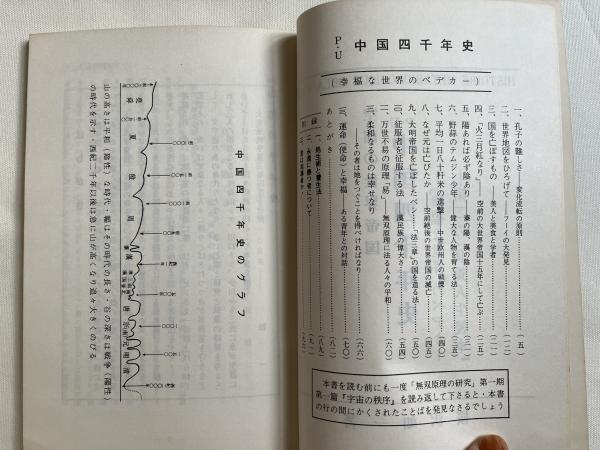 P・U 中国四千年史
(幸福な世界のベデカー)
一、孔子の難しさ――変化流転の原則 (五)
二、世界地図をひろげて――フーイの大発見 (一一)
三、国を亡ぼすもの――美人と美食と学者 (一二)
四、「火三月紅なり」 空前の大世界帝国十五年にして亡ぶ (一三)
五、陽あれば必ず陰あり 秦の陽、漢の陰 (二一)
六、野蒜のテムジン少年―偉大な人物を育てる法 (二五)
七、平均一日八十粁米の進撃――中世欧州人の戦慄
八、なぜ元は亡びたか 空前絶後の世界帝国の滅亡 (四五)
九、大明帝国を亡ぼしたペン―「法三章」の国を造る法 (五四)
一〇、征服者を征服する法 漢民族の偉大さ
一一、万世不易の原理「易」 無双原理に法る人々の平和 (六〇)
一二、柔和なるものは幸せなり
――その者は地をつぐことを得べければなり (六六)
一三、運命(使命)と幸福 ある青年との対話 (七〇)
あとがき (八二)
附録
一、処生術と養生法 (八九)
本書を読む前にも一度「無双原理の研究」第一期
第一篇『宇宙の秩序』を読み返して下さると・本書
の行の間にかくされたことばを発見なさるでしょう
中国四千年史のグラフ
堯舜
夏
殷
周
漢
唐
宋
元
明
清
山の高さは平和(陰性)な時代・幅はその時代の長さ・谷の深さは戦争(陽性)
の時代を示す・西紀二千年以後は急に山が高くなり追々大きくのびる